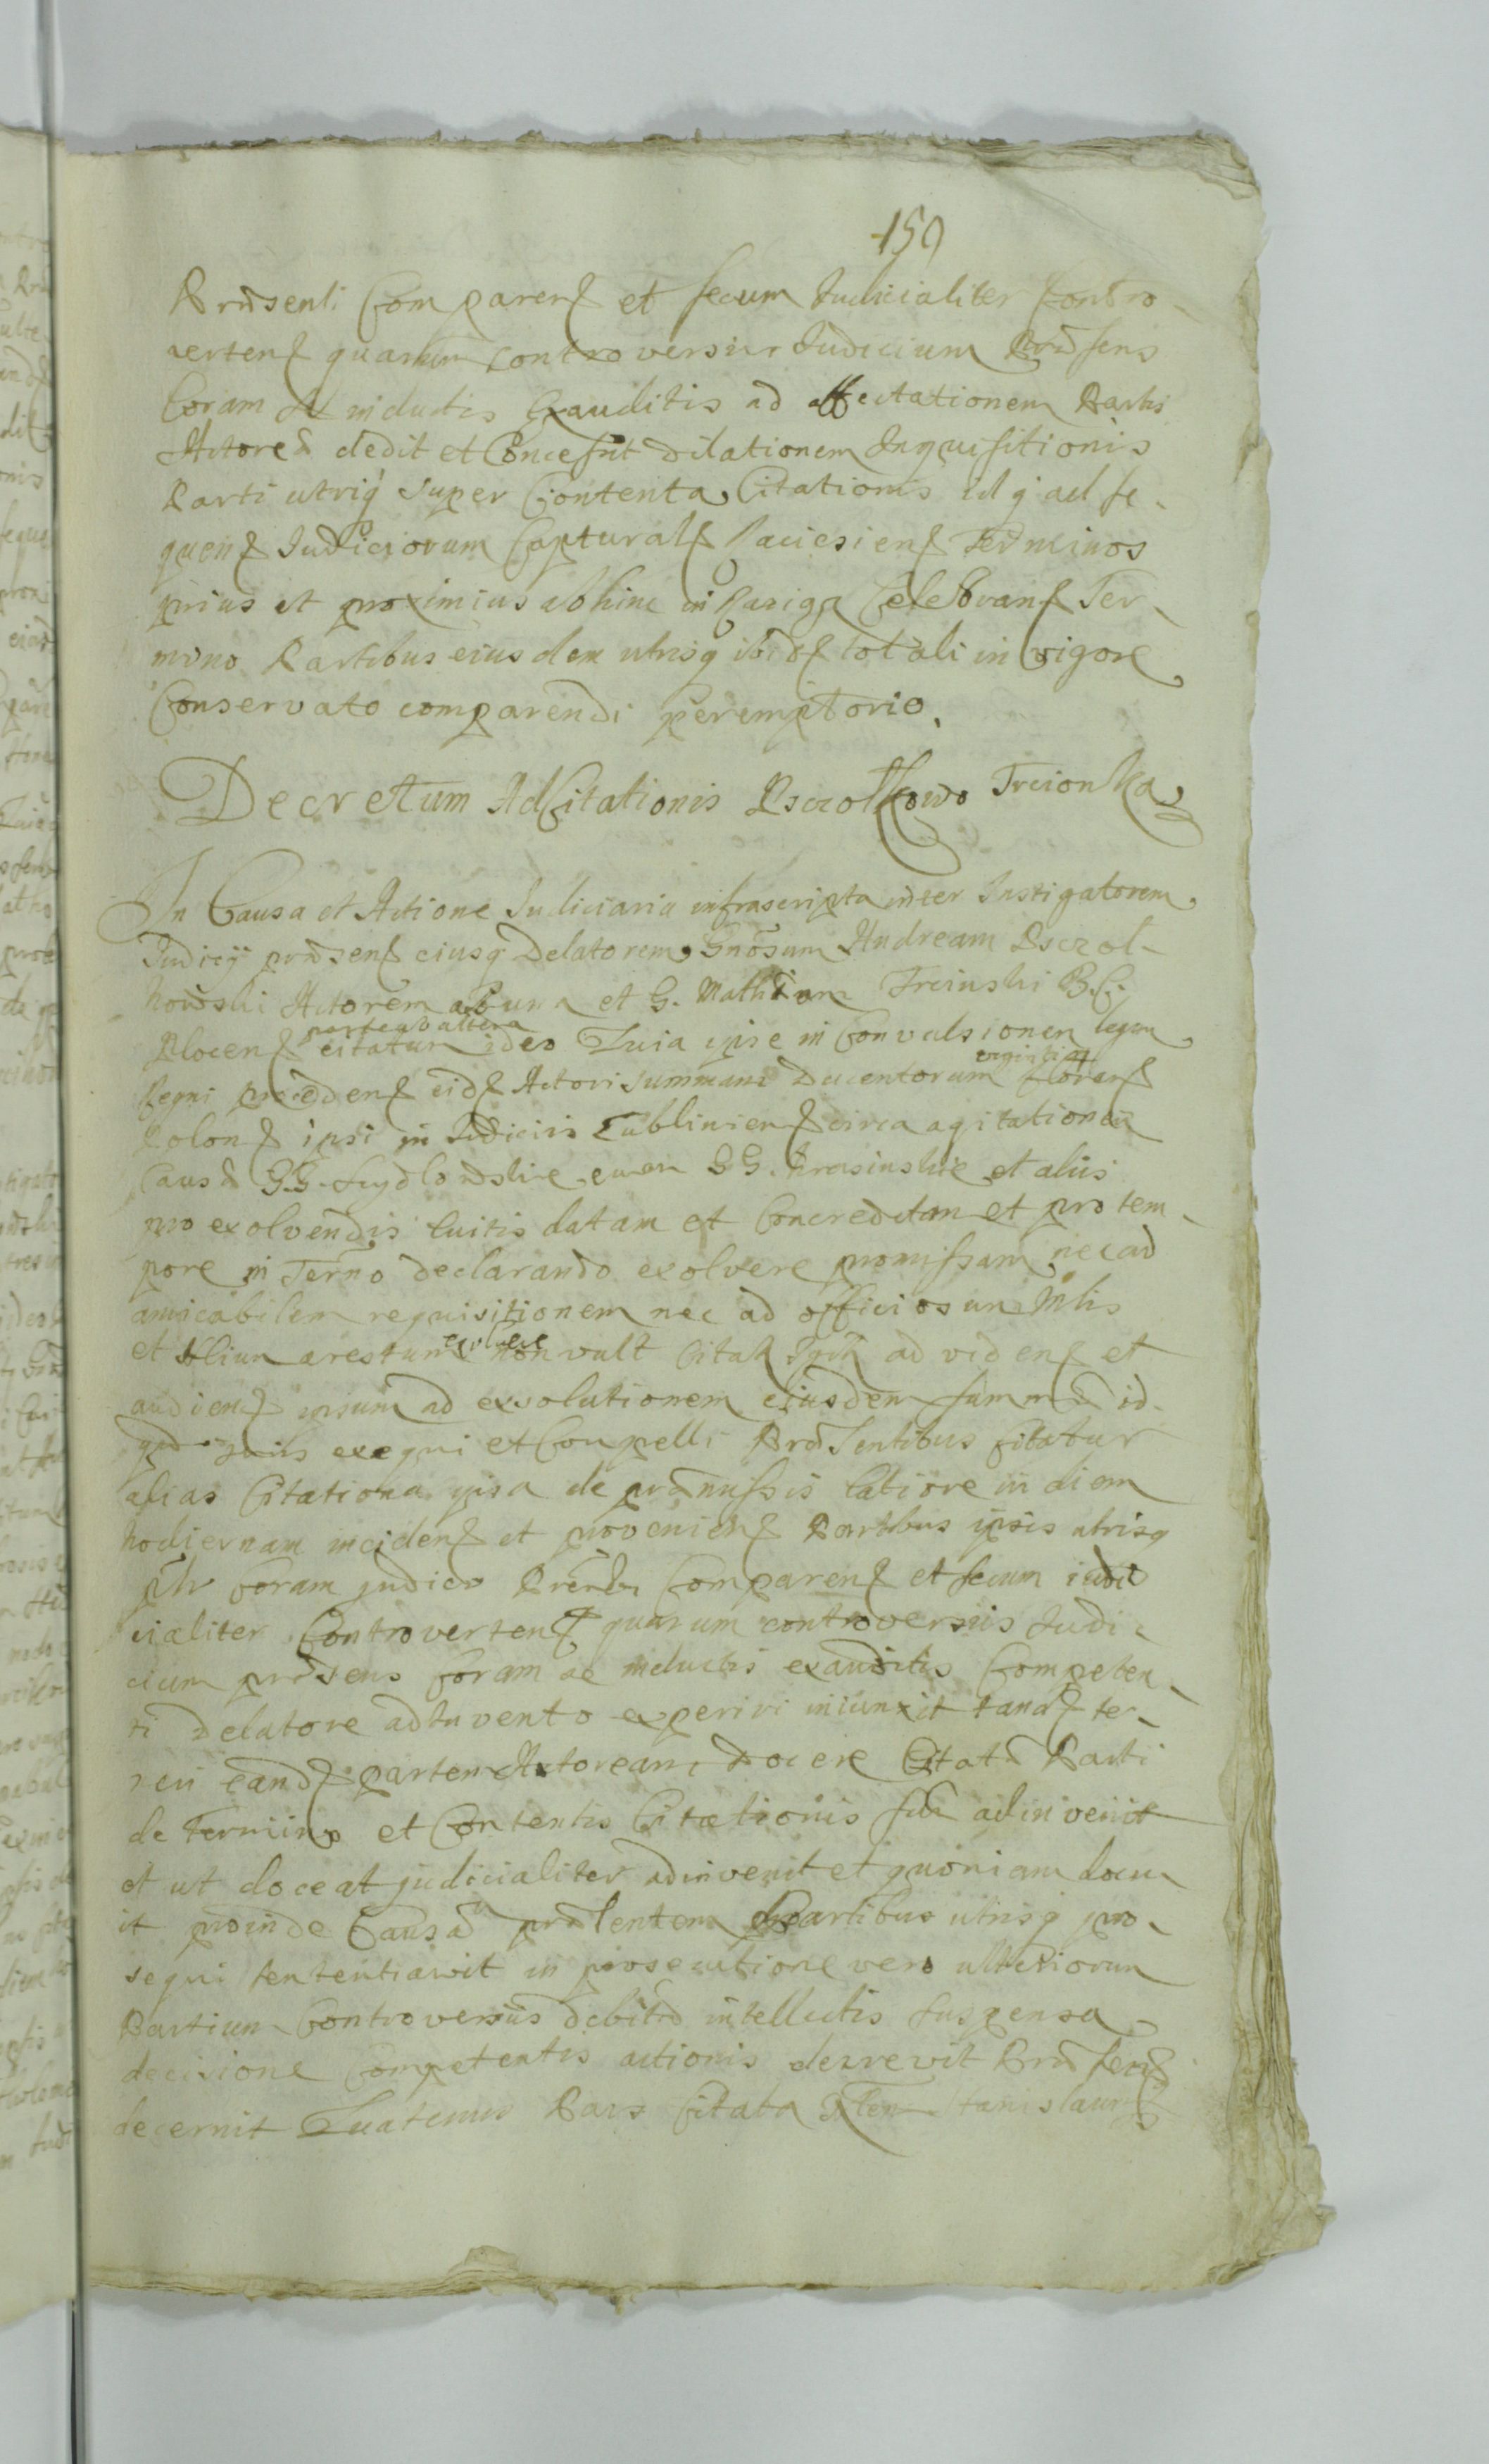 159
Præsenti Comparen et secum Judicialiter Contro-
verten quarum controversiis Judicium Præsens
Coram se inductis Exauditis ad affectationem Partis
Actoreæ dedit et Concessit Dilationem Inquisitionis
Parti utriq super Contenta Citationis idq ad se-
quen Judiciorum Captural Raciesien Terminos
prius et proximius abhinc in Raciąż Celebran Ter-
mino Partibus eiusdem utrisq ibid totali in vigore
Conservato comparendi peremptorio.
Decretum AdCitationis Pszczolkowo Trcionka
In Causa et Actione Judiciaria infrascripta inter Instigatorem
Judicij præsen eiusq Delatorem Gnosum Andream Pszczol-
kowski Actorem ab una et G. Mathiam Trcinski B. C.
Plocen citatum partem ab altera ideo Quia ipse in Convulsionem legum
Regni proceden eid Actori summam Ducentorum viginti floren
Polon ipsi in Judiciis Lublinien circa agitationem
Causæ GG. cum GG. Krasinskie et aliis
pro exolvendis luitis datam et Concreditam et pro tem-
pore in Terno declarando exolvere promissam nec ad
amicabilem requisitionem nec ad officiosum Mlis
et arestum exolvere non vult Citat ad viden et
audien ipsum ad exsolutionem eiusdem summæ id-
exequi et Compelli Præsentibus citatur
alias Citationa ipsa de præmissis latiore in diem
hodiernam inciden et provenien Partibus ipsis utrisq
Coram judicio Comparen et secum iudi
cialiter Controverten quarum controversiis Judi-
cium præsens Coram se inductis exauditis Competen-
ti Delatore adinvento experiri iniunxit tand ter-
neri eand partem Actoream Docere Citatæ Parti
de Termino et Contentis Citationis adinvenit
et ut doceat judicialiter adinvenit et quoniam docu-
it proinde Causam præsentem Partibus utrisq pro-
sequi sententiavit in prosecutione vero ulteriorum
Partium Controversiis debite intellectis suspensa
decisione Competentis actionis decrevit
decernit Quatenus Pars Citata